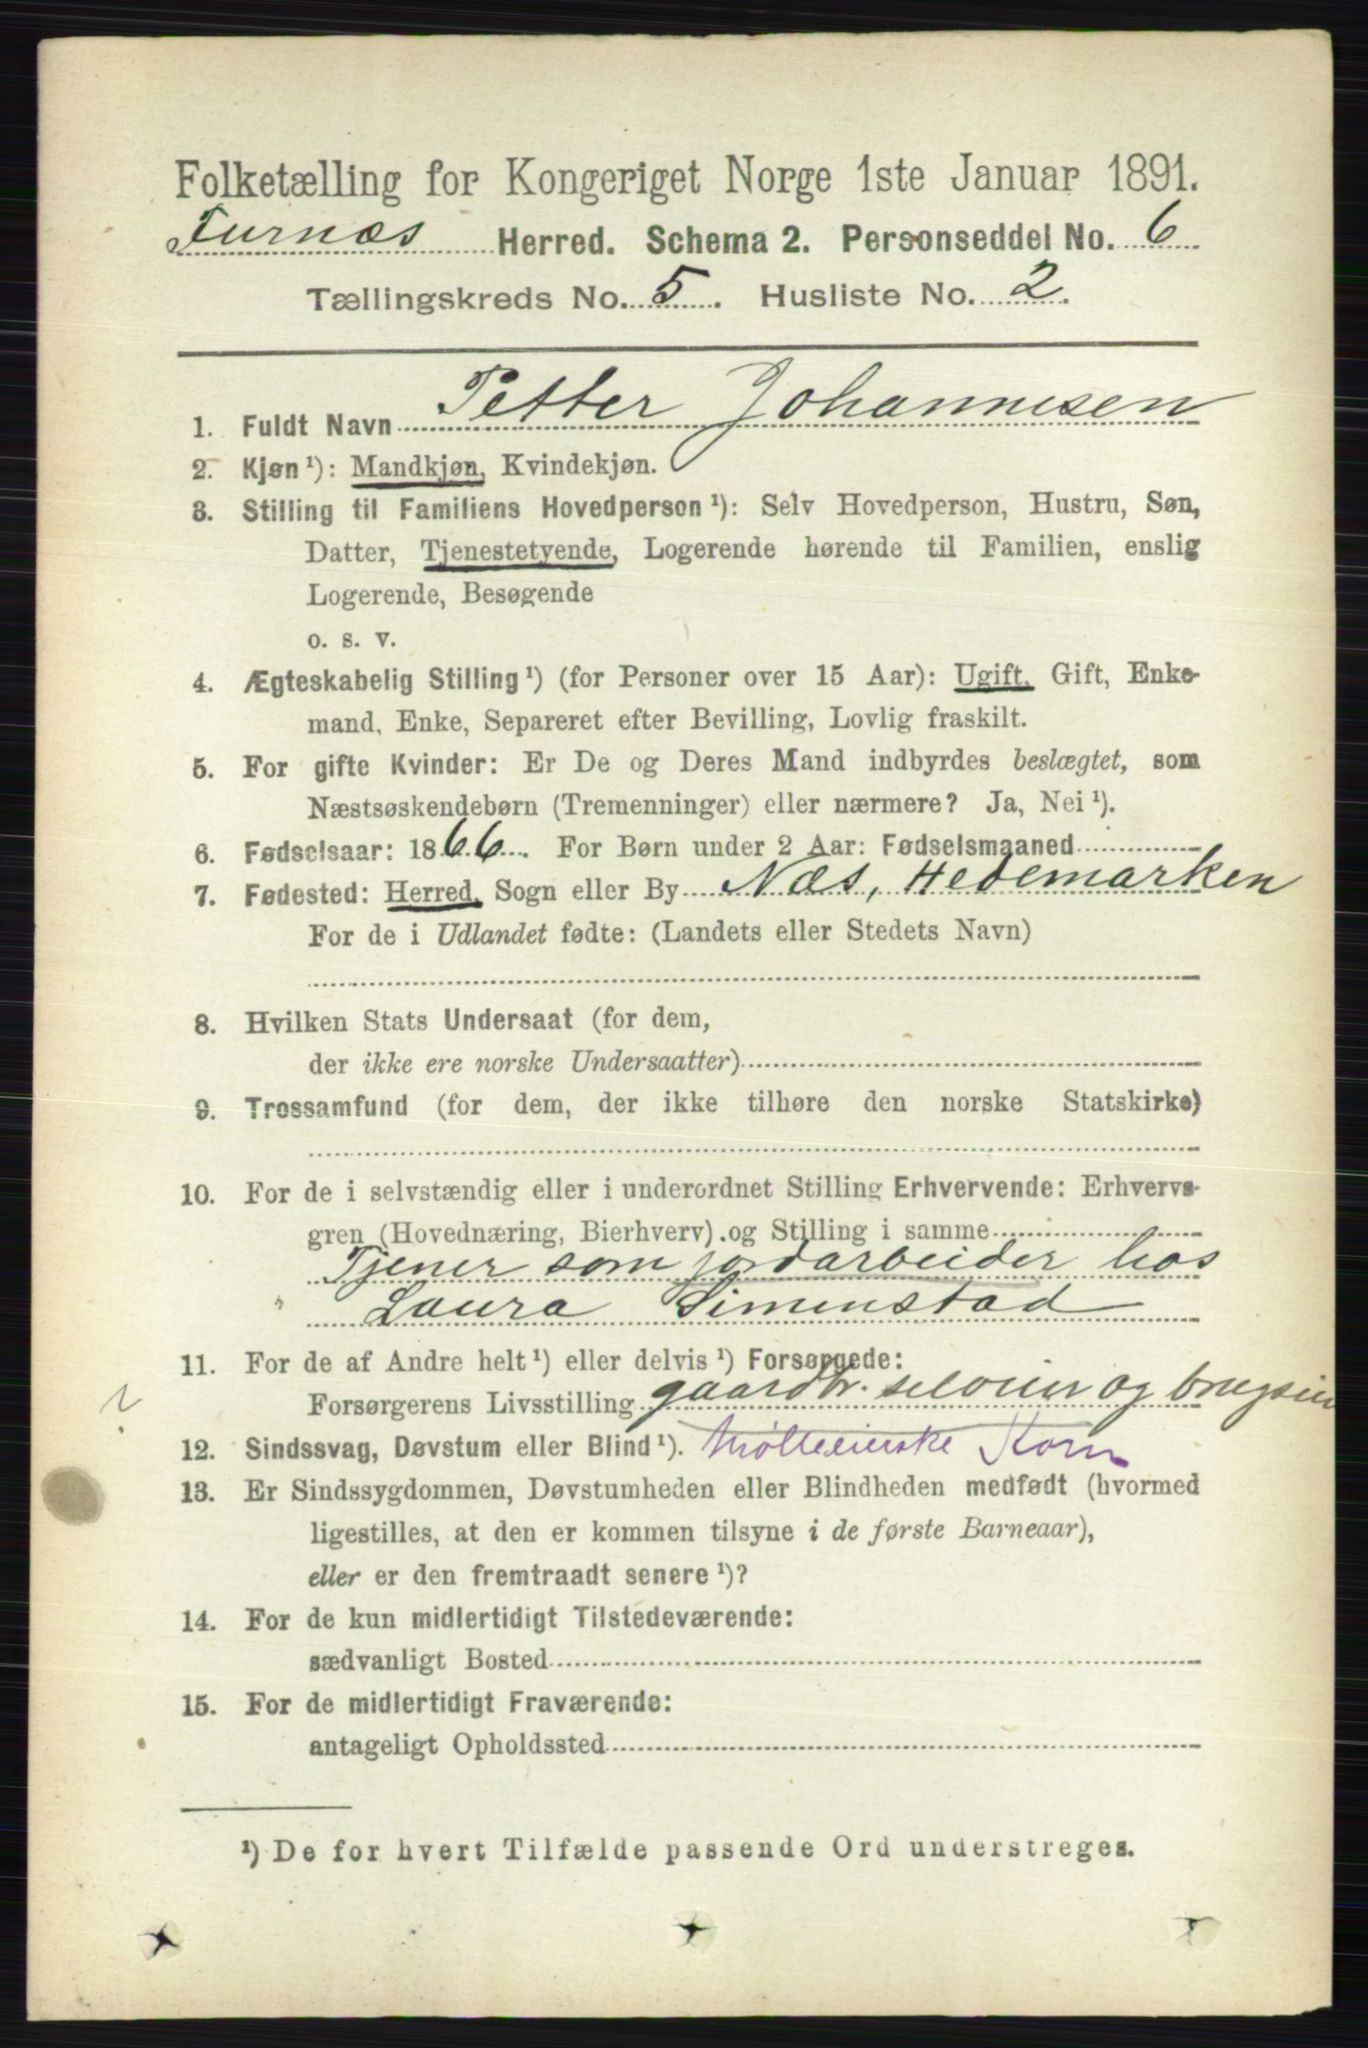 Folketælling for Kongeriget Norge 1ste Januar 1891.
Furnæs Herred. Schema 2. Personseddel No. 6
Tællingskreds No. 5. Husliste No. 2.
1. Fuldt Navn Petter Johannesen
2. Kjøn ¹): Mandkjøn, Kvindekjøn.
3. Stilling til Familiens Hovedperson ¹): Selv Hovedperson, Hustru, Søn,
Datter, Tjenestetyende, Logerende hørende til Familien, enslig
Logerende, Besøgende
o. s. v.
4. Ægteskabelig Stilling ¹) (for Personer over 15 Aar): Ugift, Gift, Enke-
mand, Enke, Separeret efter Bevilling, Lovlig fraskilt.
5. For gifte Kvinder: Er De og Deres Mand indbyrdes beslægtet, som
Næstsøskendebørn (Tremenninger) eller nærmere? Ja, Nei ¹).
6. Fødselsaar: 1866. For Børn under 2 Aar: Fødselsmaaned
7. Fødested: Herred, Sogn eller By Næs, Hedemarken
For de i Udlandet fødte: (Landets eller Stedets Navn)
8. Hvilken Stats Undersaat (for dem,
der ikke ere norske Undersaatter)
9. Trossamfund (for dem, der ikke tilhøre den norske Statskirke)
10. For de i selvstændig eller i underordnet Stilling Erhvervende: Erhvervs-
gren (Hovednæring, Bierhverv) og Stilling i samme
Tjener som jordarbeider hos
Laura Simenstad
11. For de af Andre helt ¹) eller delvis ¹) Forsørgede:
Forsørgerens Livsstilling gaardbr. seloier og
12. Sindssvag, Døvstum eller Blind ¹). Korn
13. Er Sindssygdommen, Døvstumheden eller Blindheden medfødt (hvormed
ligestilles, at den er kommen tilsyne i de første Barneaar),
eller er den fremtraadt senere ¹)?
14. For de kun midlertidigt Tilstedeværende:
sædvanligt Bosted
15. For de midlertidigt Fraværende:
antageligt Opholdssted
¹) De for hvert Tilfælde passende Ord understreges.